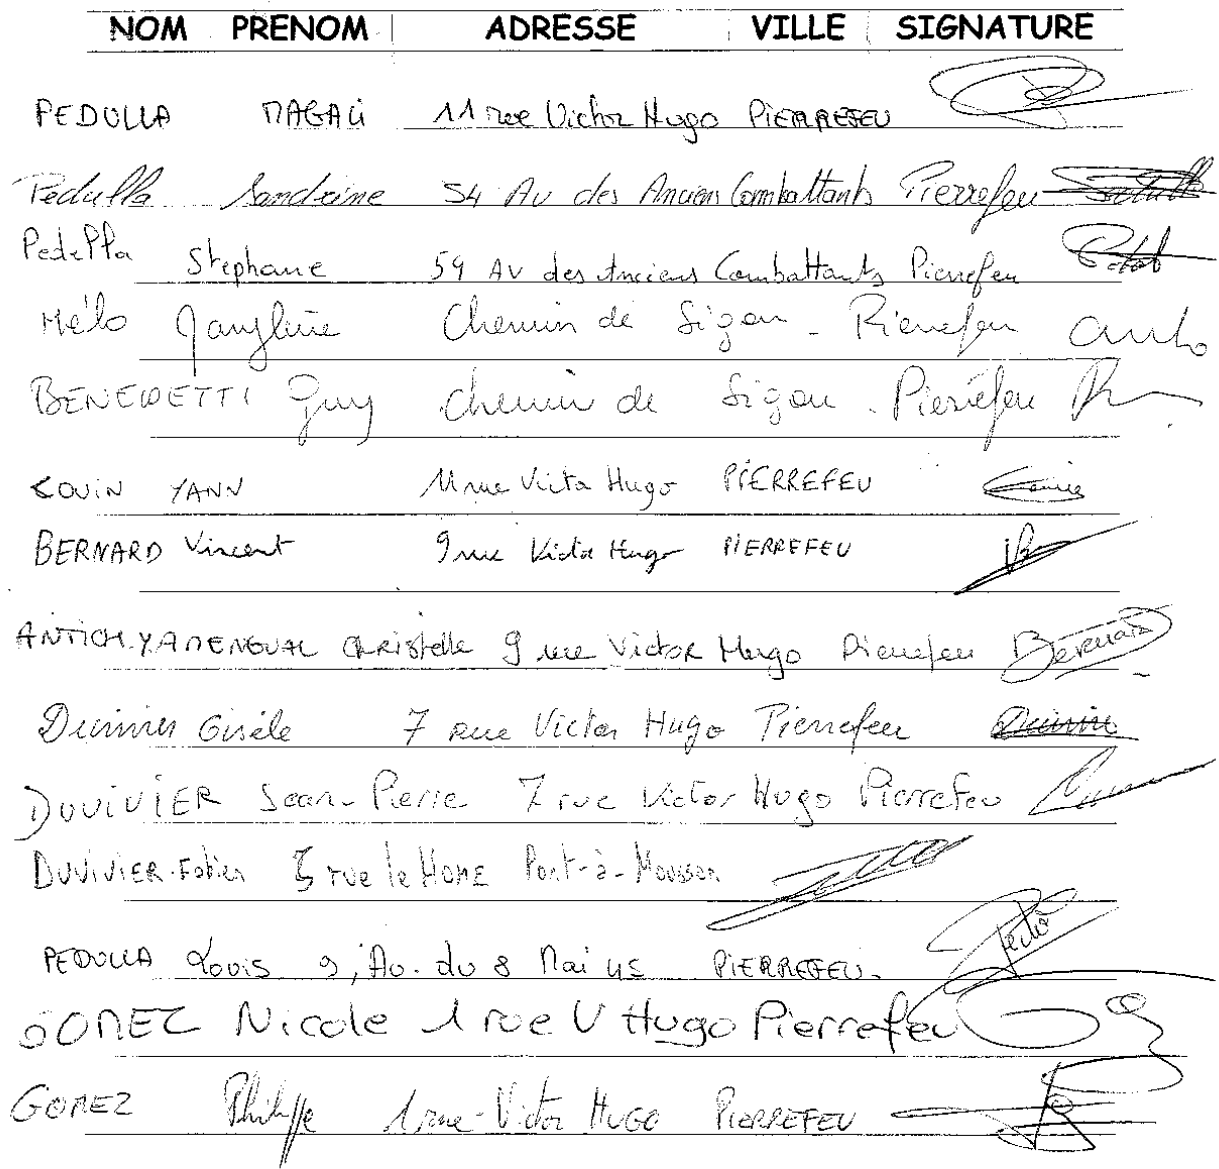 NOM PRENOM ADRESSE VILLE SIGNATURE
PEDULLA MAGALi 11 rue Victor Hugo PiERREFEU
Pedulla Sandrine 54 Av des Anciens Combattants Pierrefeu
Pedulla Stephane 54 AV des Anciens Combattants Pierrefeu
Mélo Chemin de Sigou - Pierrefeu
BENEDETTI Guy Chemin de Sigou - Pierrefeu
YANN 11 rue Victor Hugo PiERREFEU
BERNARD Vincent 9 rue Victor Hugo PIERREFEU
Christelle 9 rue Victor Hugo Pierrefeu Bernard
Gisèle 7 rue Victor Hugo Pierrefeu
DUVIVIER Jean-Pierre 7 rue Victor Hugo Pierrefeu
DUVIVIER Fabien 5 rue le HOME Pont-à-Mousson
PEDULLA Louis 9, Av. du 8 Mai 45 PIERREFEU.
GOMEZ Nicole 1 rue V Hugo Pierrefeu
GOMEZ Philippe 1 rue Victor HUGO PIERREFEU